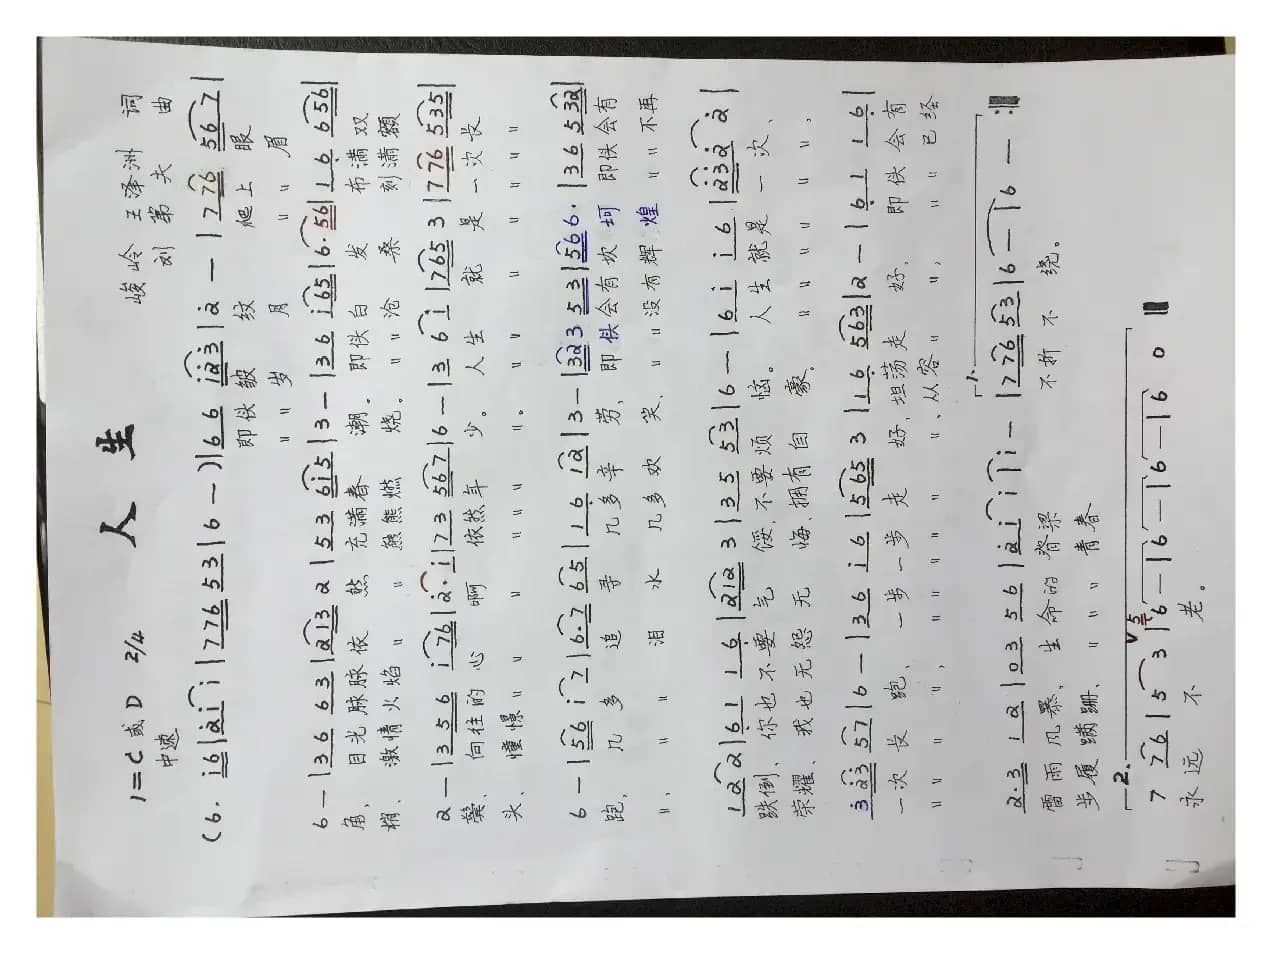 人生
1=C或D 2/4
中速
峻岭 王泽洲 词
刘第夫 曲
(6· i6|2i i|7 76 53|6 —)|6 6 i23|2 — |7 76 56 7|
即使皱纹 爬上眼
〃〃岁月 〃〃眉
6 — |36 63|2132 2|53 6i5|3 — |36 i65|6·56|16 656|
角、目光脉脉依然充满春潮。即使白发布满双
梢、激情火焰〃熊熊燃烧。〃〃沧桑刻满额
2 — |3 5 6 i 76|2·i|73 567|6 — |3 6 i|765 3|776 535|
鬓、向往的心啊依然年少。人生就是一次长
头、憧憬〃〃〃〃〃〃〃。〃〃〃〃〃〃〃
6 — |566 i7|6·7 65|16 12|3 — |323 53|566·|36 532|
跑,几多追寻几多辛劳,即使会有坎坷即使会有
〃、〃〃泪水几多欢笑、〃〃没有辉煌〃〃不再
12 2|61 16|212 3|35 53|6 — |6i i6|232 2|
跌倒、你也不要气馁,不要烦恼。人生就是一次、
荣耀、我也无怨无悔、拥有自豪。〃〃〃〃〃〃、
323 57|6 — |36 i6|565 3|16 563|2 — |61 16|
一次长跑,一步一步走好,坦荡走好,即使会有
〃〃〃〃,〃〃〃〃〃〃、从容〃〃,〃〃已经
2·3 12|03 56|2i i|i — |776 53|6 — |6 — :‖
雷雨风暴,生命的脊梁不折不绕。
步履蹒跚、〃〃〃青春
2.
7 76|5 3|6 — |6 — |6 — |6 0‖
永远不老。